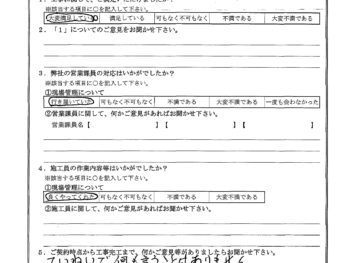 ※該当する項目に○を記入して下さい。
大変満足している 満足している 可もなく不可もなく 不満である 大変不満である
2．「1」についてのご意見をお聞かせ下さい。
3．弊社の営業課員の対応はいかがでしたか？
※該当する項目に○を記入して下さい。
①現場管理について
行き届いていた 可もなく不可もなく 不満である 大変不満である 一度も会わなかった
②営業課員に関して、何かご意見があればお聞かせ下さい。
営業課員名【 】【 】
4．施工員の作業内容等はいかがでしたか？
※該当する項目に○を記入して下さい。
①現場管理について
良くやってくれた 可もなく不可もなく 不満である 大変不満である
②施工員に関して、何かご意見があればお聞かせ下さい。
5．ご契約時点から工事完工まで、何かご意見等がありましたらお聞かせ下さい。
ていねいで何も言うことはありません